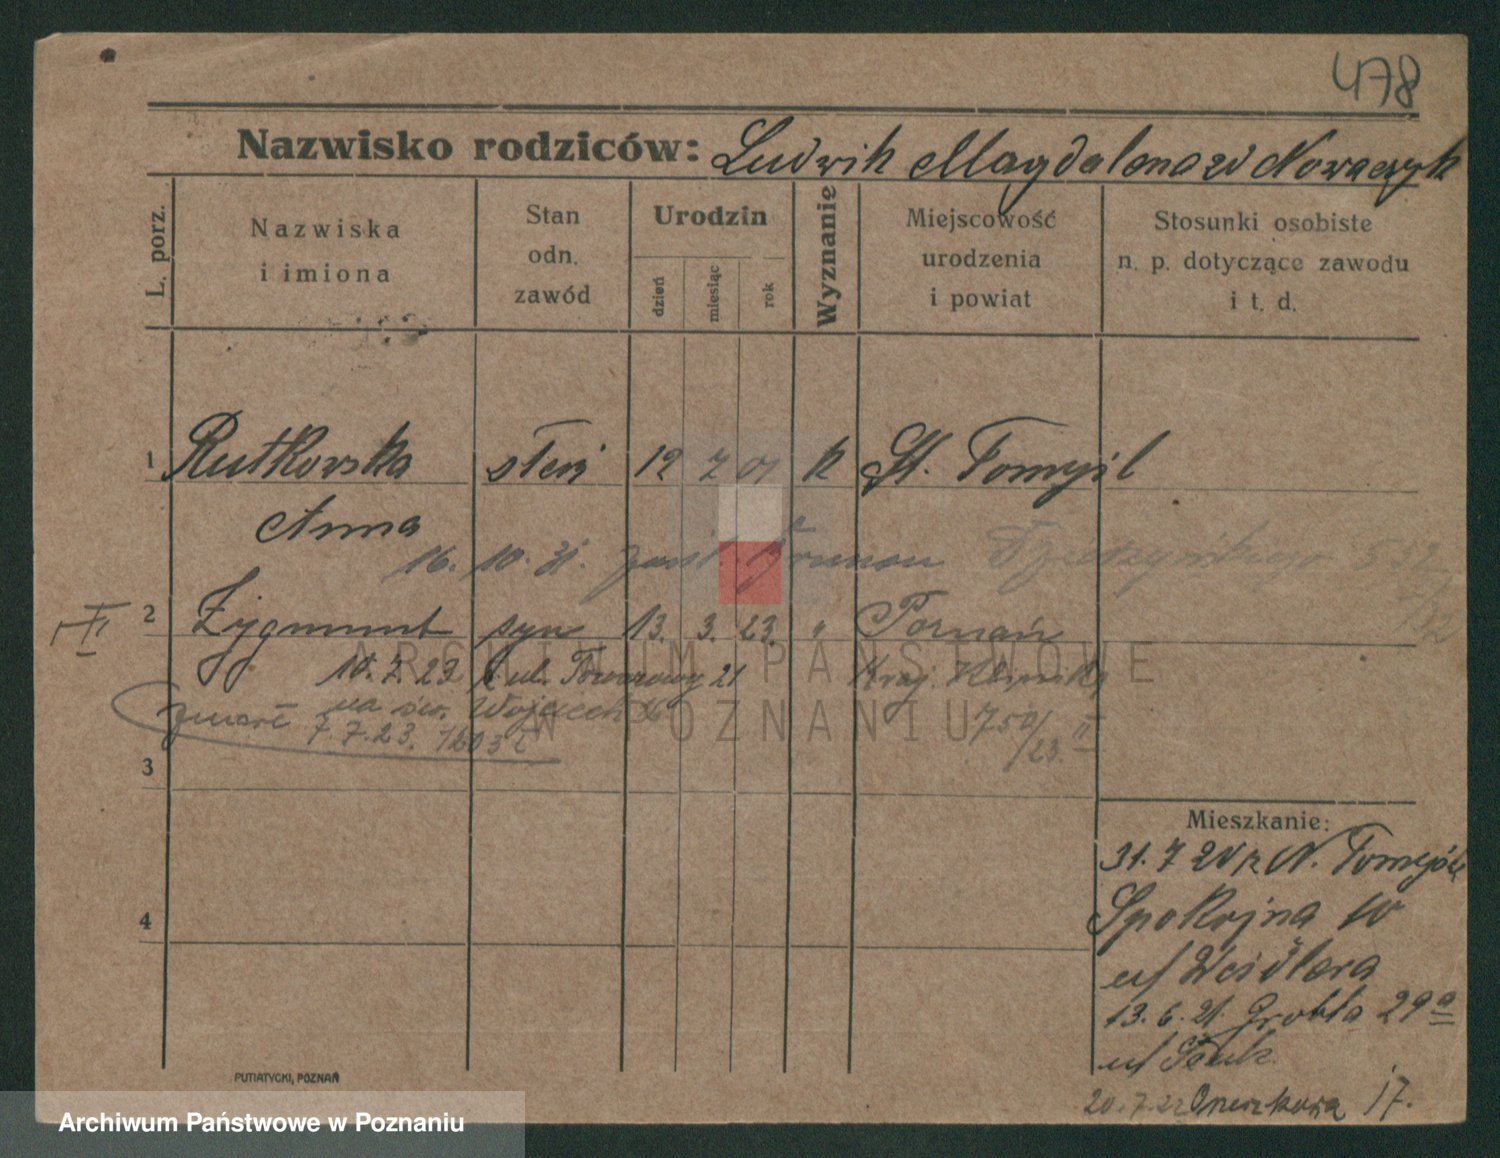 478
Nazwisko rodziców: Ludwik Magdalena zd Nowaczyk
L. porz.
Nazwiska
i imiona
Stan
odn.
zawód
Urodzin
dzień
miesiąc
rok
Wyznanie
Miejscowość
urodzenia
i powiat
Stosunki osobiste
n. p. dotyczące zawodu
i t. d.
1 Rutkowska 12 7 01 k St. Tomyśl
Anna
16. 10. 31.
2 Zygmunt syn 13. 3. 23. " Poznań
10. 7. 23 ul. Towarowy 21
zmarł na św. Wojciech
7. 7. 23.
750/23 II
3
4
Mieszkanie:
31. 7 20 z N. Tomyśla
Spokojna 10
u/ Weidlera
13. 6. 21. Grobla 29a
u/
20. 7. 22 17.
PUTIATYCKI, POZNAŃ
ARCHIWUM PAŃSTWOWE
W POZNANIU
Archiwum Państwowe w Poznaniu